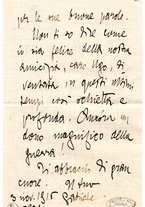 per le sue buone parole.
Non ti so dire come
io sia felice della nostra
amicizia, caro Ugo, di-
ventata, in questi ultimi
tempi così schietta e
profonda. Ancora un
dono magnifico della
guerra!
Ti abbraccio di gran
cuore. Il tuo
3 nov. 1916 Gabriele